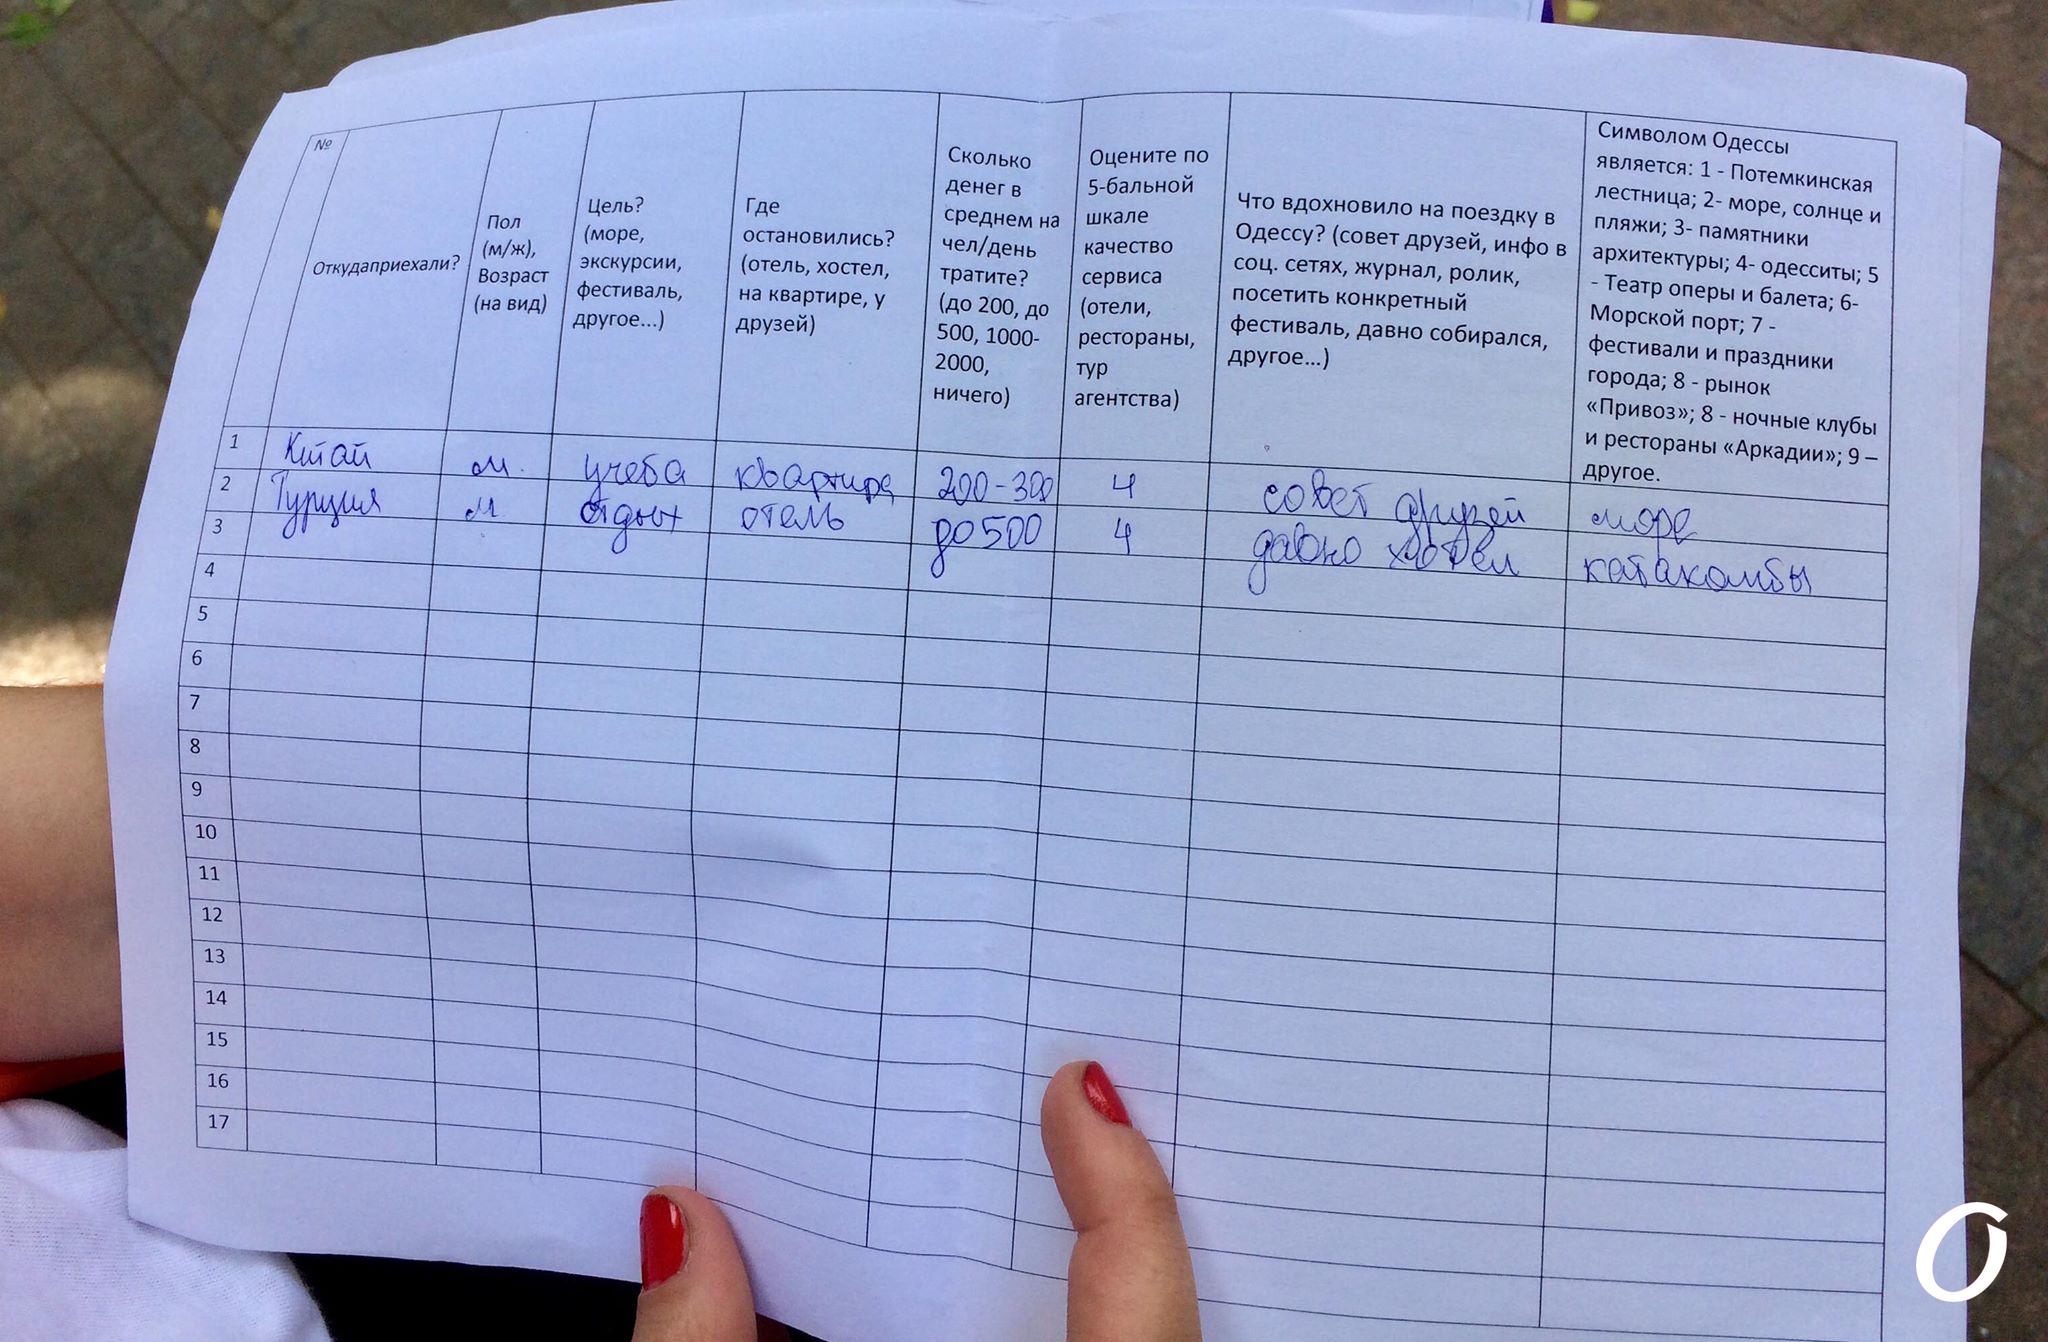 №
Откудаприехали?
Пол
(м/ж),
Возраст
(на вид)
Цель?
(море,
экскурсии,
фестиваль,
другое...)
Где
остановились?
(отель, хостел,
на квартире, у
друзей)
Сколько
денег в
среднем на
чел/день
тратите?
(до 200, до
500, 1000-
2000,
ничего)
Оцените по
5-бальной
шкале
качество
сервиса
(отели,
рестораны,
тур
агентства)
Что вдохновило на поездку в
Одессу? (совет друзей, инфо в
соц. сетях, журнал, ролик,
посетить конкретный
фестиваль, давно собирался,
другое...)
Символом Одессы
является: 1 - Потемкинская
лестница; 2- море, солнце и
пляжи; 3- памятники
архитектуры; 4- одесситы; 5
- Театр оперы и балета; 6-
Морской порт; 7 -
фестивали и праздники
города; 8 - рынок
«Привоз»; 8 - ночные клубы
и рестораны «Аркадии»; 9 –
другое.
1 Китай м. учеба квартира 200-300 4 совет друзей море
2 Турция м. отдых отель до 500 4 давно хотел катакомбы
3
4
5
6
7
8
9
10
11
12
13
14
15
16
17
O